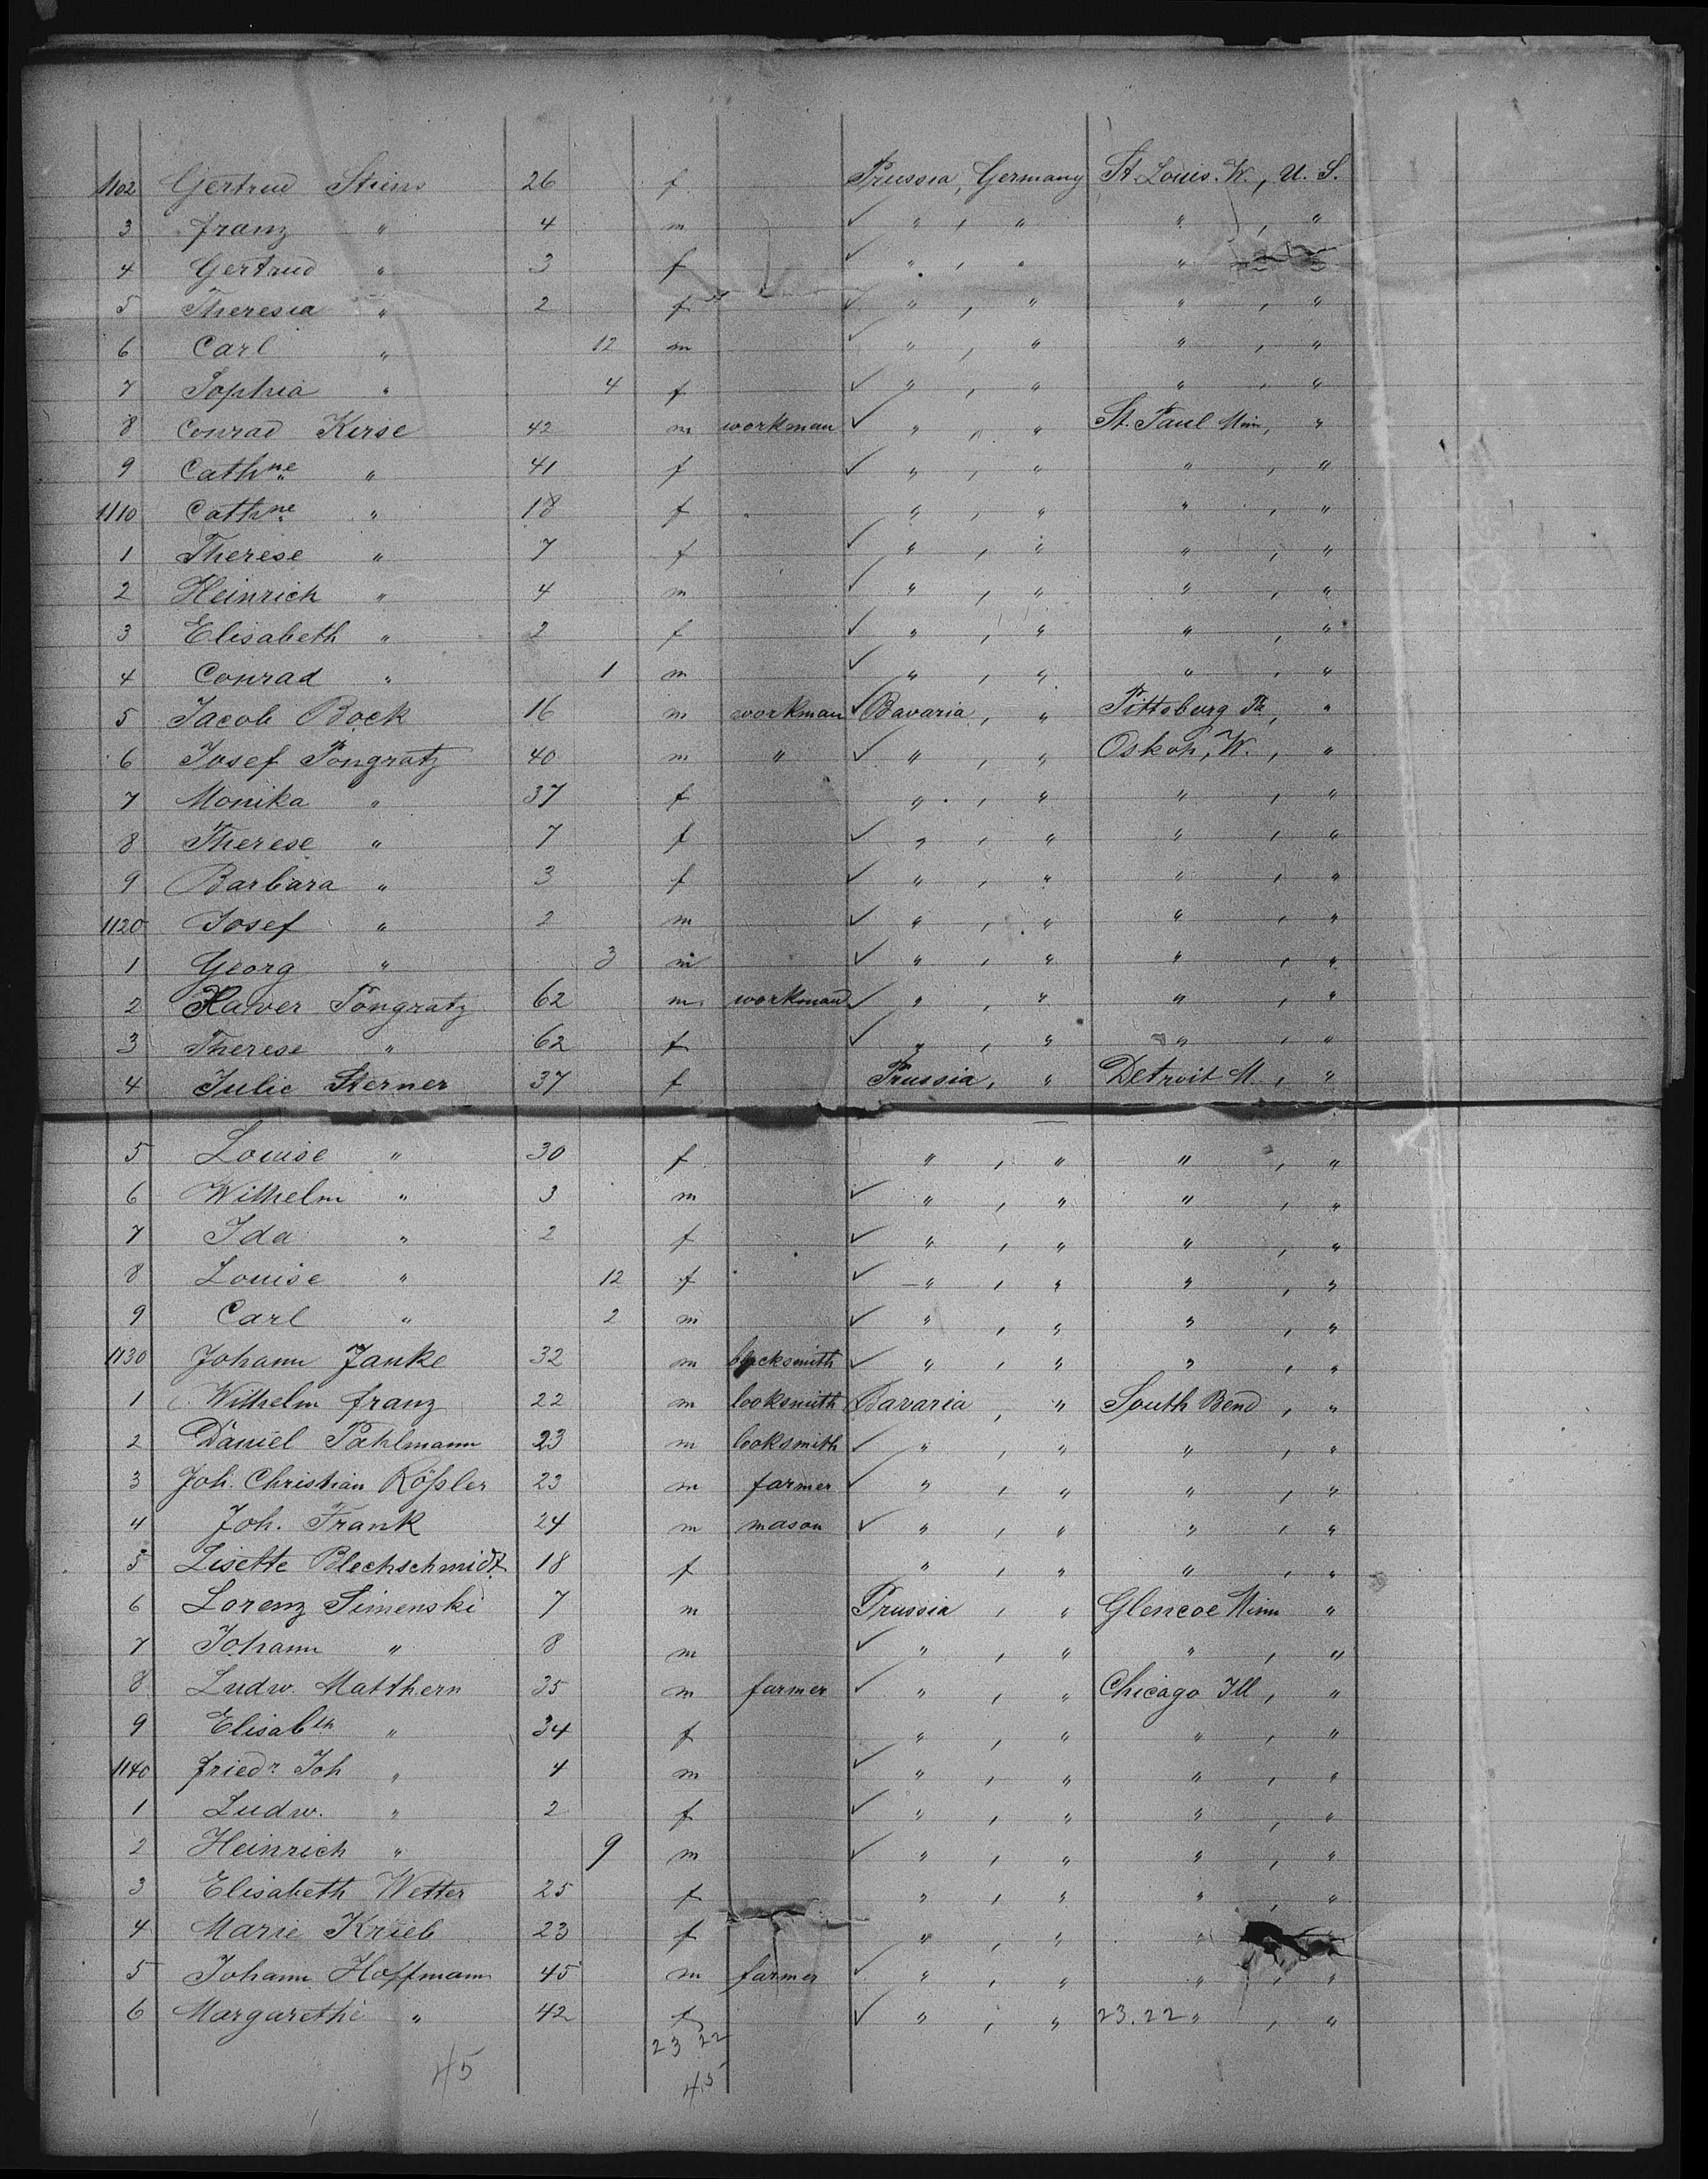 1102 Gertrud Stiens 26 f Prussia, Germany St. Louis. W., U. S.
3 Franz " 4 m ✓ " , " " , "
4 Gertrud " 3 f ✓ " , " "
5 Theresia " 2 f ✓ " , " " , "
6 Carl " 12 m ✓ " , " " , "
7 Sophia " 4 f ✓ " , " " , "
8 Conrad Kirse 42 m workman ✓ " , " St. Paul Min, "
9 Cathne " 41 f ✓ " , " " , "
1110 Cathne " 18 f " , " " , "
1 Therese " 7 f ✓ " , " " , "
2 Heinrich " 4 m ✓ " , " " , "
3 Elisabeth " 2 f ✓ " , " " , "
4 Conrad " 1 m ✓ " , " " , "
5 Jacob Bock 16 m workman ✓ Bavaria, " Pittsburg Pa, "
6 Josef Pongratz 40 m " ✓ " , " Oskoh, W. , "
7 Monika " 37 f " , " " , "
8 Therese " 7 f ✓ " , " " , "
9 Barbara " 3 f ✓ " , " " , "
1120 Josef " 2 m ✓ " , " " , "
1 Georg " 3 m ✓ " , " " , "
2 Xaver Pongratz 62 m workman ✓ " , " " , "
3 Therese " 62 f ✓ " , " " , "
4 Julie Sterner 37 f Prussia, " Detroit M. , "
5 Louise " 30 f " , " " , "
6 Wilhelm " 3 m ✓ " , " " , "
7 Ida " 2 f ✓ " , " " , "
8 Louise " 12 f ✓ " , " " , "
9 Carl " 2 m ✓ " , " " , "
1130 Johann Janke 32 m blacksmith ✓ " , " " , "
1 Wilhelm Franz 22 m looksmith Bavaria , " South Bend , "
2 Daniel Pahlmann 23 m looksmith ✓ " , " " , "
3 Joh. Christian Rößler 23 m farmer ✓ " , " " , "
4 Joh. Frank 24 m mason ✓ " , " " , "
5 Lisette Blechschmidt 18 f " , " " , "
6 Lorenz Simenski 7 m Prussia , " Glencoe Minn "
7 Johann " 8 m ✓ " , " " , "
8 Ludw. Matthern 35 m farmer ✓ " , " Chicago Ill , "
9 Elisabth " 34 f " , " " , "
1140 Friedr Joh " 4 m ✓ " , " " , "
1 Ludw. " 2 f ✓ " , " " , "
2 Heinrich " 9 m ✓ " , " " , "
3 Elisabeth Wetter 25 f " , " " , "
4 Marie Krieb 23 f " , " "
5 Johann Hoffmann 45 m farmer ✓ " , " " , "
6 Margarethe " 42 f ✓ " , " 23.22 " , "
23 22
45 45